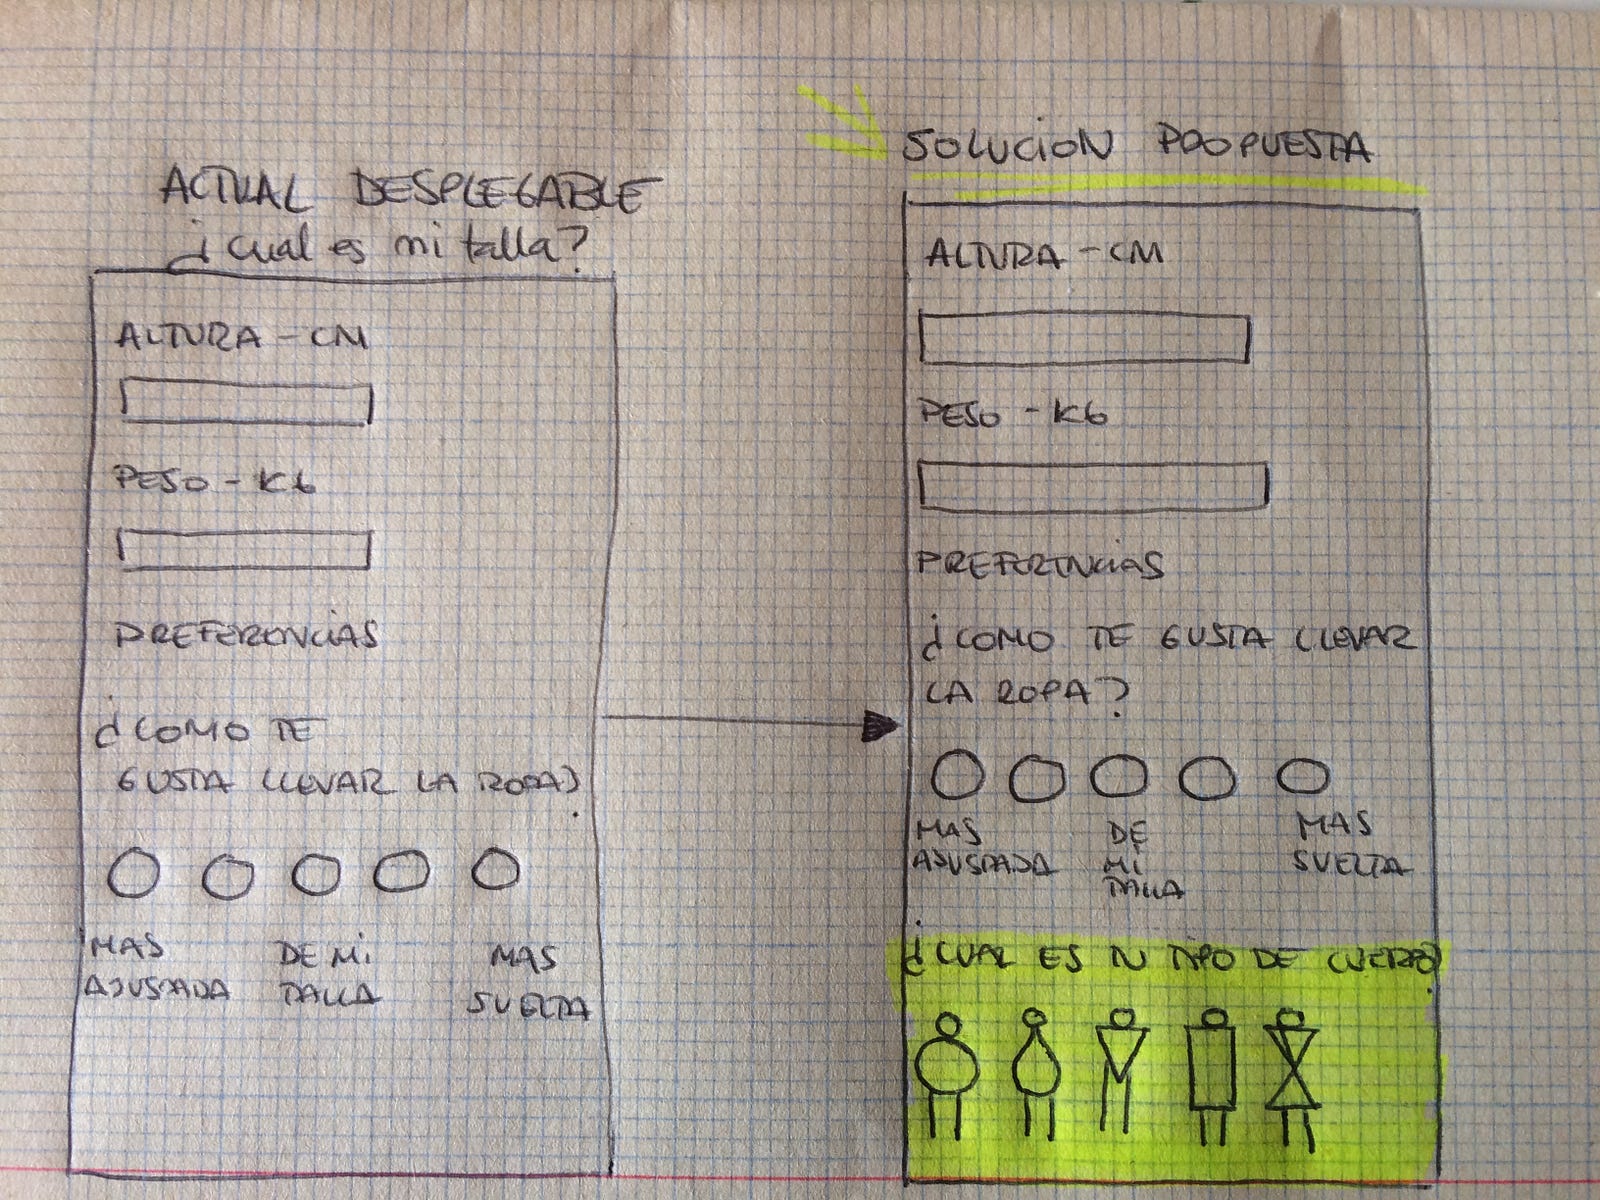 ACTUAL DESPLEGABLE
¿Cual es mi talla?
ALTURA - CM
PESO - KG
PREFERENCIAS
¿COMO TE
GUSTA LLEVAR LA ROPA?
MAS AJUSTADA
DE MI TALLA
MAS SUELTA
SOLUCION PROPUESTA
ALTURA - CM
PESO - KG
PREFERENCIAS
¿COMO TE GUSTA LLEVAR
LA ROPA?
MAS AJUSTADA
DE MI TALLA
MAS SUELTA
¿CUAL ES TU TIPO DE CUERPO?